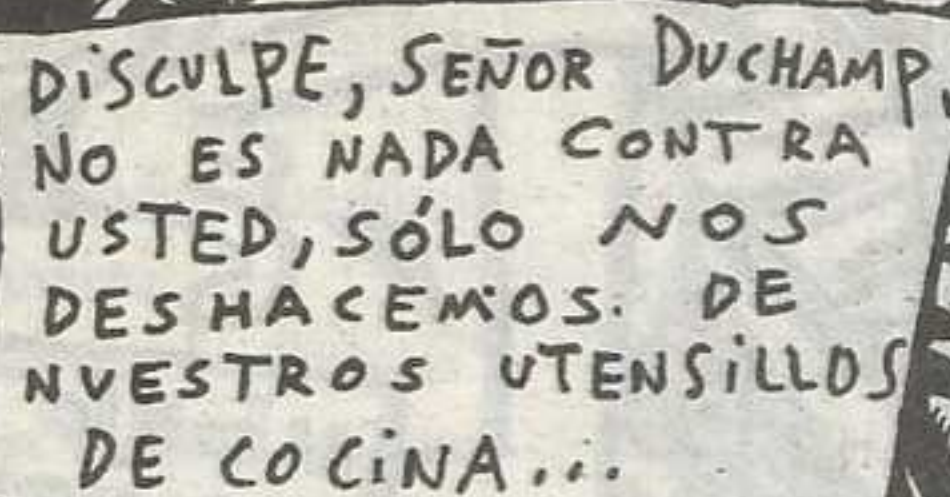 DISCULPE, SEÑOR DUCHAMP,
NO ES NADA CONTRA
USTED, SÓLO NOS
DESHACEMOS. DE
NUESTROS UTENSILLOS
DE COCINA...